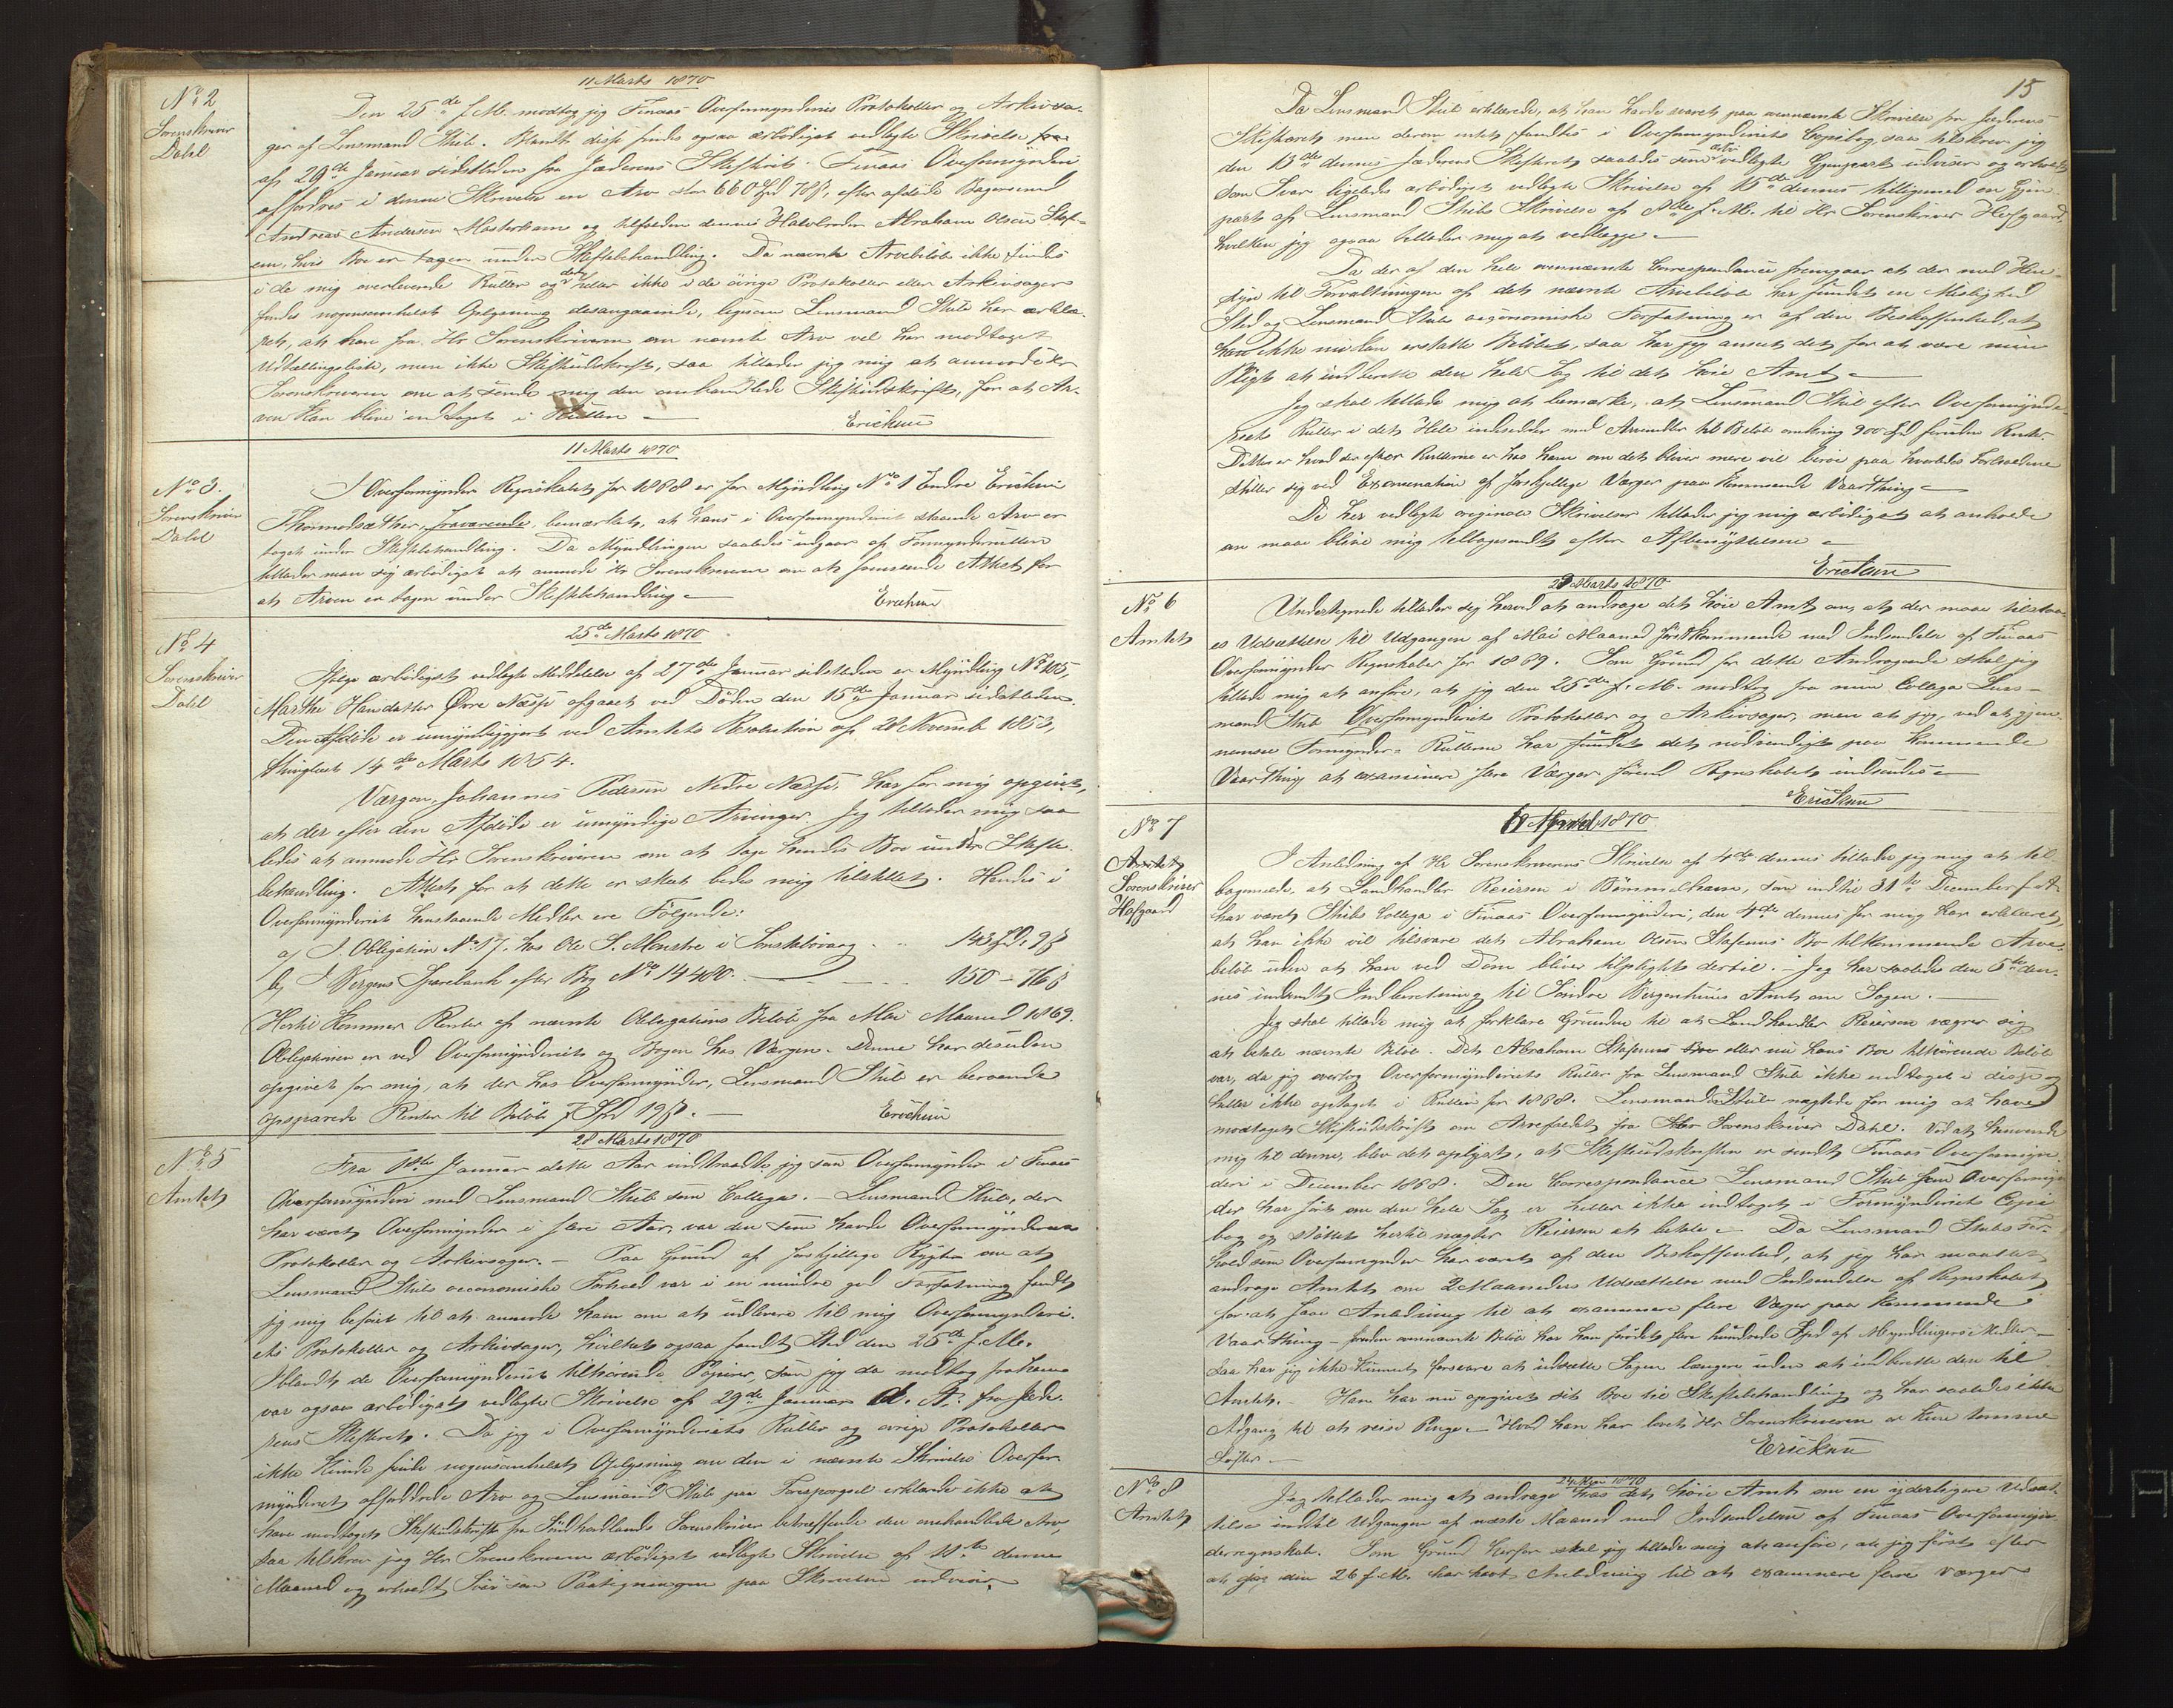 11 Marts 1870
No 2
Sorenskriver
Dahl
Den 25de f. M. modtog jeg Finaas Overformynderis Protokoller og Arkivsa-
ger af Lensmand Stub. Blandt disse findes ogsaa ærbødigst vedlagte Skrivelse fra
af 29de Januar sidstleden fra Jæderens Skifteret. Finaas Overformynderi
affordres i denne Skrivelse en Arv stor 660 Spd 78 ß. efter afdøde Bagersvend
Andreas Andersen Mosterhavn og tilfalden dennes Halvbroder Abraham Olsen Staf-
sen, hvis Bo er tagen under Skiftebehandling. Da nævnte Arvebeløb ikke findes
i de mig overleverede Ruller og der heller ikke i de øvrige Protokoller eller Arkivsager
findes nogensomhelst Oplysning desangaaende, ligesom Lensmand Stub har erklæ-
ret, at han fra Hr Sorenskriveren om nævnte Arv vel har modtaget
Udtællingsliste, men ikke Skifteudskrift, saa tillader jeg mig at anmode Hr
Sorenskriveren om at sende mig den omhandlede Skifteudskrift, for at Ar-
ven kan blive indtaget i Rullen —
Ericksen
11 Marts 1870
No 3.
Sorenskriver
Dahl
I Overformynder Regnskabet for 1868 er for Myndling No 1 Endre Ericksen
Thormodsæther, fraværende, bemærket, at hans i Overformynderiet staaende Arv er
taget under Skiftebehandling. Da Myndlingen saaledes udgaar af Formynderrullen
tillader man sig ærbødigst at anmode Hr Sorenskriveren om at fremsende Attest for
at Arven er tagen under Skiftebehandling —
Ericksen
25de Marts 1870
No 4
Sorenskriver
Dahl
Ifølge ærbødigst vedlagte Meddelelse af 27de Januar sidstleden er Myndling No 105,
Marthe Hansdatter Øvre Næsse afgaaet ved Døden den 15de Januar sidstleden.
Den Afdøde er umyndiggjort ved Amtets Resolution af 21 Novemb 1853,
thinglæst 14de Marts 1854.
Værgen, Johannes Pedersen Nedre Næsse, har for mig opgivet,
at der efter den Afdøde er umyndige Arvinger. Jeg tillader mig saa
ledes at anmode Hr Sorenskriveren om at tage hendes Bo under Skifte-
behandling. Attest for at dette er skeet bedes mig tilstillet. Hendes i
Overformynderiet henstaaende Midler ere Følgende:
a, I Obligation No 17. hos Ole S. Monstre i . . 143 Spd. 9 ß
b, I Bergens Sparebank efter Bog No 14480. — . . . 150 – 116 ß
Hertil kommer Renter af nævnte Obligations Beløb fra Mai Maaned 1869.
Obligationen er ved Overformynderiet og Bogen hos Værgen. Denne har desuden
opgivet for mig, at der hos Overformynder, Lensmand Stub er beroende
opsparede Renter til Beløb 7 Spd 19 ß. —
Ericksen
28 Marts 1870
No 5
Amtet
Fra 1ste Januar dette Aar indtraadte jeg som Overformynder i Finaas
Overformynderi med Lensmand Stub som Collega. — Lensmand Stub, der
har været Overformynder i flere Aar, var den som havde Overformynderiets
Protokoller og Arkivsager. — Paa Grund af forskjellige Rygter om at
Lensmand Stubs oeconomiske Forhold var i en mindre god Forfatning fandt
jeg mig beføiet til at anmode ham om at udlevere til mig Overformynderi-
ets Protokoller og Arkivsager, hvilket ogsaa fandt Sted den 25de f. M.
Iblandt de Overformynderiet tilhørende Papirer, som jeg da modtog fra ham
var ogsaa ærbødigst vedlagte Skrivelse af 29de Januar d. A. fra Jæde-
rens Skifteret. Da jeg i Overformynderiets Ruller og øvrige Protokoller
ikke kunde finde nogensomhelst Oplysning om den i nævnte Skrivelse Overfor-
mynderiet affordrede Arv og Lensmand Stub paa Forespørgsel erklærede ikke at
have modtaget Skifteudskrift fra Søndhordlands Sorenskriver betræffende den omhandlede Arv,
saa tilskrev jeg Hr Sorenskriveren ærbødigst vedlagte Skrivelse af 11te denne
Maaned og erholdt Svar som Paategningen paa Skrivelsen udviser.
15
Da Lensmand Stub erklærede, at han havde svaret paa ovennævnte Skrivelse fra Jæderens
Skifteret men derom intet fandtes i Overformynderiets Copiebog, saa tilskrev jeg
den 13de dennes Jæderens Skifteret saaledes som vedlagte Gjenpart udviser og erholdt
som Svar ligeledes ærbødigst vedlagte Skrivelse af 15de dennes tilligemed en Gjen-
part af Lensmand Stubs Skrivelse af f. M. til Hr Sorenskriver Hofgaard,
hvilken jeg ogsaa tillader mig at vedlægge. —
Da der af den hele ovennævnte Correspondance fremgaar at der med Hen-
syn til Forvaltningen af det nævnte Arvebeløb har fundet en Mislighed
Sted og Lensmand Stubs oeconomiske Forfatning er af den Beskaffenhed, at
han ikke nu kan erstatte Beløbet, saa har jeg anseet det for at være min
Pligt at indberette den hele Sag til det høie Amt —
Jeg skal tillade mig at bemærke, at Lensmand Stub efter Overformynde-
riets Ruller i det Hele indesidder med Arvemidler til Beløb omkring 900 Spd foruden Renter
Dette er hvad der efter Rullerne er hos ham om det bliver mere vil beroe paa hvorledes Forholdene
stiller sig ved Examination af forskjellige Værger paa kommende Vaarthing —
De her vedlagte originale Skrivelser tillader jeg mig ærbødigst at anholde
om maa blive mig tilbagesendt efter Afbenyttelsen —
Ericksen
29 Marts 1870
No 6
Amtet
Undertegnede tillader sig herved at andrage det høie Amt om, at der maa tilstaa-
es Udsættelse til Udgangen af Mai Maaned førstkommende med Indsendelse af Finaas
Overformynder Regnskaber for 1869. Som Grund for dette Andragende skal jeg
tillade mig at anføre, at jeg den 25de f. M. modtog fra min Collega Lens-
mand Stub Overformynderiets Protokoller og Arkivsager, men at jeg, ved at gjen-
nemsee Formynder-Rullerne har fundet det nødvendigt paa kommende
Vaarthing at examinere flere Værger førend Regnskabet indsendes —
Ericksen
April 1870
No 7
Amtet
Sorenskriver
Hofgaard
I Anledning af Hr Sorenskriverens Skrivelse af 4de dennes tillader jeg mig at til-
bagemelde, at Landhandler Reiersen i Bømmelhavn, som indtil 31te December f. A.
har været Stubs Collega i Finaas Overformynderi, den 4de dennes for mig har erklæret,
at han ikke vil tilsvare det Abraham Olsen Stafsens Bo tilkommende Arve-
beløb uden at han ved Dom bliver tilpligtet dertil. — Jeg har saaledes den 5te den-
nes indsendt Indberetning til Søndre Bergenhus Amt om Sagen. —
Jeg skal tillade mig at forklare Grunden til at Landhandler Reiersen vægrer sig
at betale nævnte Beløb. Det Abraham Stafsens Boe eller nu hans Boe tilhørende Beløb
var, da jeg overtog Overformynderiets Ruller fra Lensmand Stub ikke indtaget i disse og
heller ikke optaget i Rullen for 1868. Lensmand Stub nægtede for mig at have
modtaget Skifteudskrift om Arvefaldet fra Sorenskriver Dahl. Ved at henvende
mig til denne, blev det oplyst, at Skifteudskriften er sendt Finaas Overformyn-
deri i December 1868. Den Correspondance Lensmand Stub som Overformyn-
der har ført om den hele Sag er heller ikke indtaget i Formynderiets Copie-
bog og støttet hertil nægter Reiersen at betale. — Da Lensmand Stubs For-
hold som Overformynder har været af den Beskaffenhed, at jeg har maattet
andrage Amtet om 2 Maaneders Udsættelse med Indsendelse af Regnskabet
for at faae Anledning til at examinere flere Værger paa kommende
Vaarthing — foruden ovennævnte Beløb har han forødet flere hundrede Spd af Myndlingers Midler —
saa har jeg ikke kunnet forsvare at udsætte Sagen længere uden at indberette den til
Amtet. — Han har nu opgivet sit Boe til Skiftebehandling og har saaledes ikke
Adgang til at reise Penge. — Hvad han har lovet Hr Sorenskriveren er kun tomme
Løfter. —
Ericksen
24 Mai 1870
No 8
Amtet
Jeg tillader mig at andrage hos det høie Amt om en yderligere Udsæt-
telse indtil Udgangen af næste Maaned med Indsendelsen af Finaas Overformyn-
derregnskab. Som Grund herfor skal jeg tillade mig at anføre, at jeg først efter
at jeg den 26 f. M. har havt Anledning til at examinere flere Værger